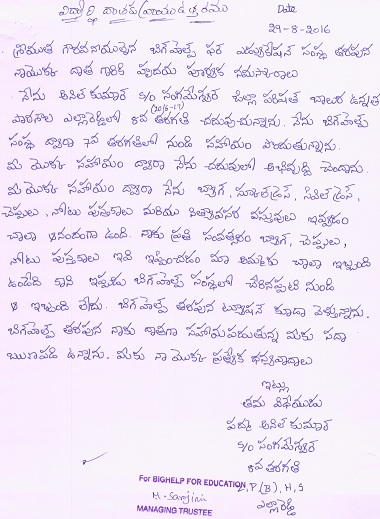 విద్యార్థి దాతకు వ్రాయు ఉత్తరము
తేది
29-8-2016
శ్రీయుత గౌరవనీయులైన బిగ్‌హెల్ప్ ఫర్ ఎడ్యుకేషన్ సంస్థ తరపున
నాయొక్క దాత గారికి హృదయ పూర్వక నమస్కారాలు
నేను అనిల్ కుమార్ S/O సంగమేశ్వర్ జిల్లా పరిషత్ బాలుర ఉన్నత
(2016-17)
పాఠశాల ఎల్లారెడ్డిలో 8వ తరగతి చదువుచున్నాను. నేను బిగ్‌హెల్ప్
సంస్థ ద్వారా 7వ తరగతిలో నుండి సహాయం పొందుతున్నాను.
మీ యొక్క సహాయం ద్వారా నేను చదువులో అభివృద్ధి చెందాను.
మీ యొక్క సహాయం ద్వారా నేను బ్యాగ్, స్కూల్‌డ్రెస్, సివిల్ డ్రెస్,
చెప్పులు, నోటు పుస్తకాలు మరియు నిత్యావసర వస్తువులు ఇవ్వడం
చాలా ఆనందంగా ఉంది. నాకు ప్రతి సంవత్సరం బ్యాగ్, చెప్పులు,
నోటు పుస్తకాలు ఇవి ఇప్పించడం మా అమ్మకు చాలా ఇబ్బంది
ఉండేది కాని ఇప్పుడు బిగ్‌హెల్ప్ సంస్థలో చేరినప్పటి నుండి
ఆ ఇబ్బంది లేదు. బిగ్‌హెల్ప్ తరపున ట్యూషన్ కూడా వెళ్తున్నాను.
బిగ్‌హెల్ప్ తరపున నాకు దాతగా సహాయపడుతున్న మీకు సదా
ఋణపడి ఉన్నాను. మీకు నా యొక్క ప్రత్యేక ధన్యవాదాలు
ఇట్లు
తమ విధేయుడు
పద్మ అనిల్ కుమార్
S/O సంగమేశ్వర్
8వ తరగతి
Z.P.(B).H.S
ఎల్లారెడ్డి
For BIGHELP FOR EDUCATION
M. Sarojini
MANAGING TRUSTEE